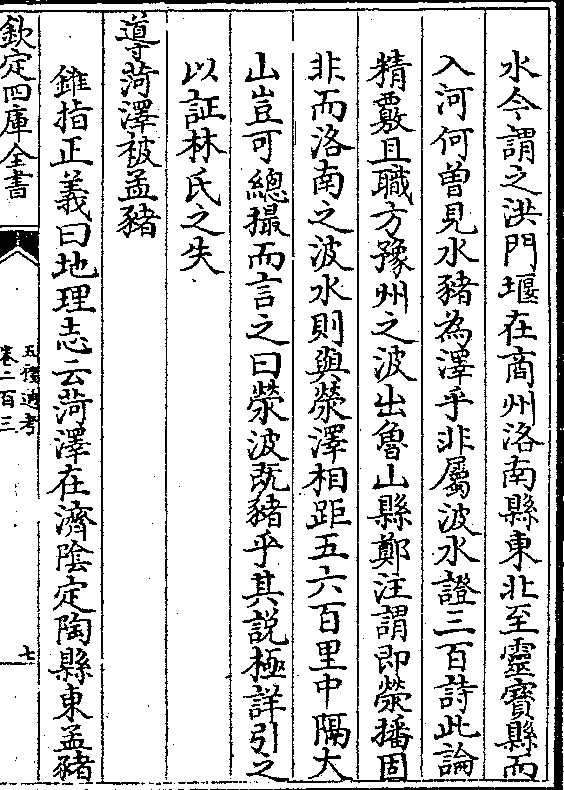 水今謂之洪門堰在商州洛南縣東北至靈寶縣而
入河何曾見水豬為澤乎非屬波水證三百詩此論
精覈且職方豫州之波出魯山縣鄭注謂即滎播固
非而洛南之波水則與滎澤相距五六百里中隔大
山豈可總撮而言之曰滎波既豬乎其説極詳引之
以証林氏之失
導菏澤被孟豬
錐指正義曰地理志云菏澤在濟陰定陶縣東孟豬
欽定四庫全書
五禮通考
卷二百三
七